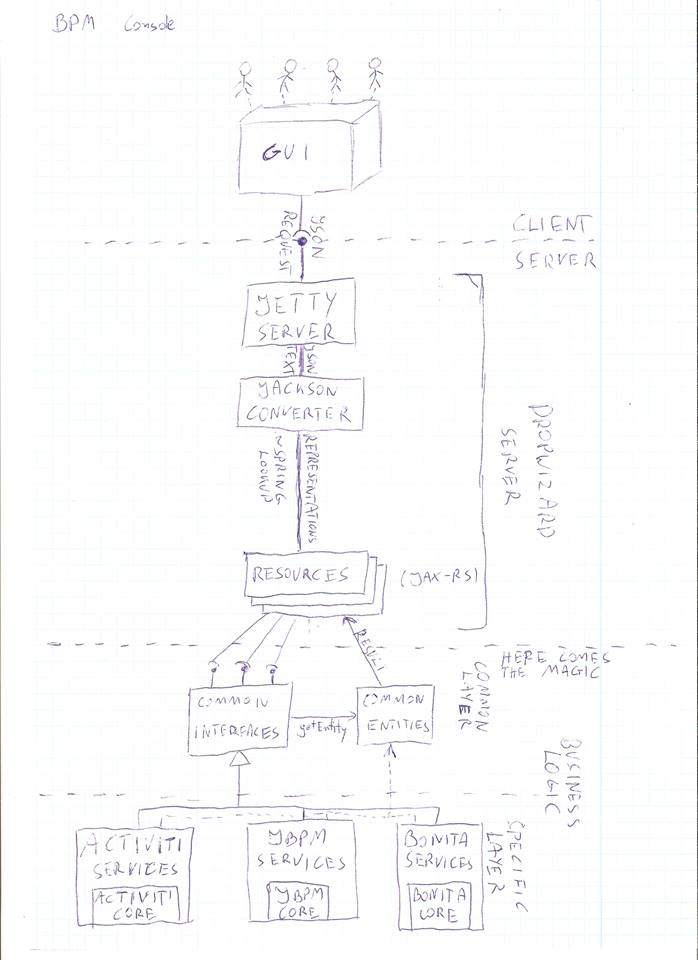 BPM Console
GUI
JSON
REQUEST
CLIENT
SERVER
JETTY
SERVER
JSON
TEXT
JACKSON
CONVERTER
REPRESENTATIONS
SPRING
LOOKUP
DROPWIZARD
SERVER
RESOURCES
(JAX-RS)
RESULT
HERE COMES
THE MAGIC
COMMON
INTERFACES
getEntity
COMMON
ENTITIES
COMMON
LAYER
BUSINESS
LOGIC
ACTIVITI
SERVICES
ACTIVITI
CORE
JBPM
SERVICES
JBPM
CORE
BONITA
SERVICES
BONITA
CORE
SPECIFIC
LAYER